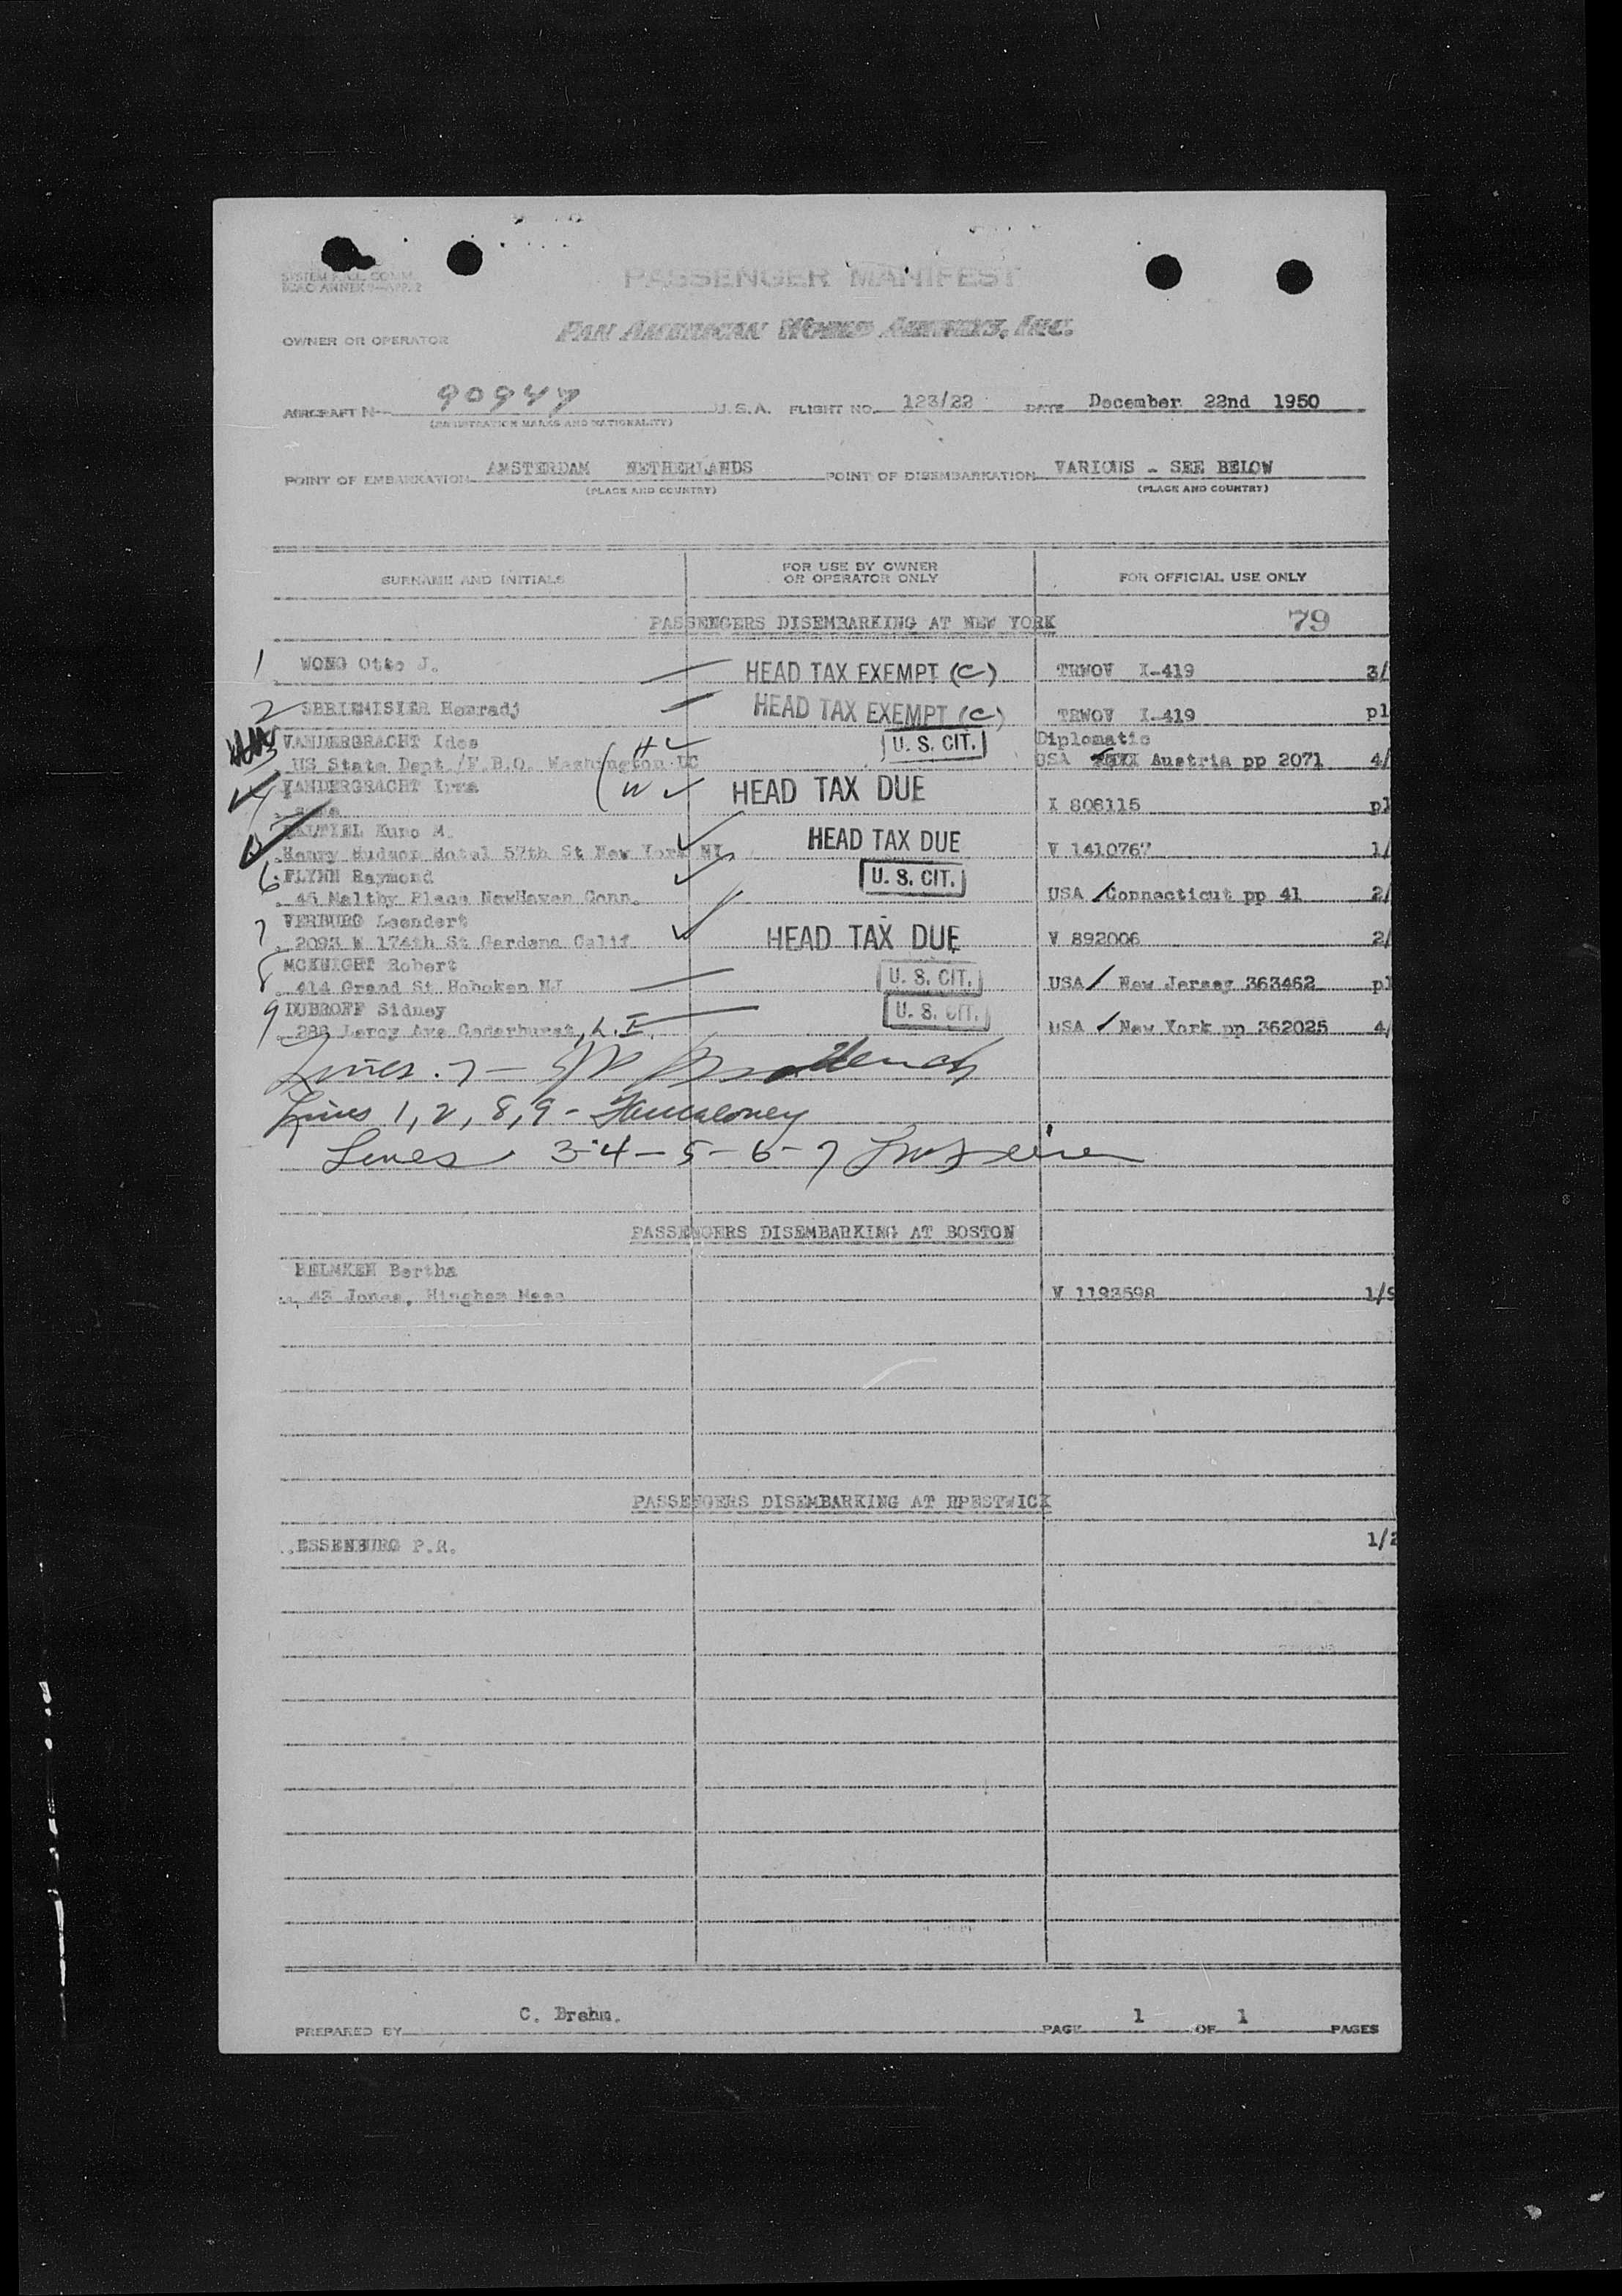 PASSENGER MANIFEST
SYSTEM F.A.L. COMM.
ICAO ANNEX 9—APP. 2
OWNER OR OPERATOR PAN AMERICAN WORLD AIRWAYS, INC.
AIRCRAFT N— 90947 U.S.A. FLIGHT NO. 123/22 DATE December 22nd 1950
(REGISTRATION MARKS AND NATIONALITY)
POINT OF EMBARKATION AMSTERDAM NETHERLANDS POINT OF DISEMBARKATION VARIOUS - SEE BELOW
(PLACE AND COUNTRY) (PLACE AND COUNTRY)
SURNAME AND INITIALS FOR USE BY OWNER OR OPERATOR ONLY FOR OFFICIAL USE ONLY
PASSENGERS DISEMBARKING AT NEW YORK 79
1 WONG Otto J. HEAD TAX EXEMPT (C) TRWOV I-419 3/
2 Hemradj HEAD TAX EXEMPT (C) TRWOV I-419 pl
3 VANDERGRACHT Ides H U. S. CIT. Diplomatic
US State Dept /F.B.O. Washington DC USA Austria pp 2071 4/
4 VANDERGRACHT Irma W HEAD TAX DUE
same I 806115 pl
5 PALTIEL Kuno M. HEAD TAX DUE
Henry Hudson Hotel 57th St New York NY V 1410767 1/
6 FLYNN Raymond U. S. CIT.
45 Maltby Place NewHaven Conn. USA Connecticut pp 41 2/
7 VERBURG Leendert
2093 W 174th St Gardena Calif HEAD TAX DUE V 892006 2/
8 MCKNIGHT Robert U. S. CIT.
414 Grand St Hoboken NJ USA New Jersey 363462 pl
9 DUBROFF Sidney U. S. CIT.
288 Leroy Ave Cedarhurst, L.I. USA New York pp 362025 4/
Lines 7 —
Lines 1, 2, 8, 9 -
Lines 3-4-5-6-7
PASSENGERS DISEMBARKING AT BOSTON
HELMKEN Bertha
43 Jones, Hingham Mass V 1193598 1/9
PASSENGERS DISEMBARKING AT RPESTWICK
ESSENBURG P.R. 1/2
PREPARED BY C. Brehm. PAGE 1 OF 1 PAGES